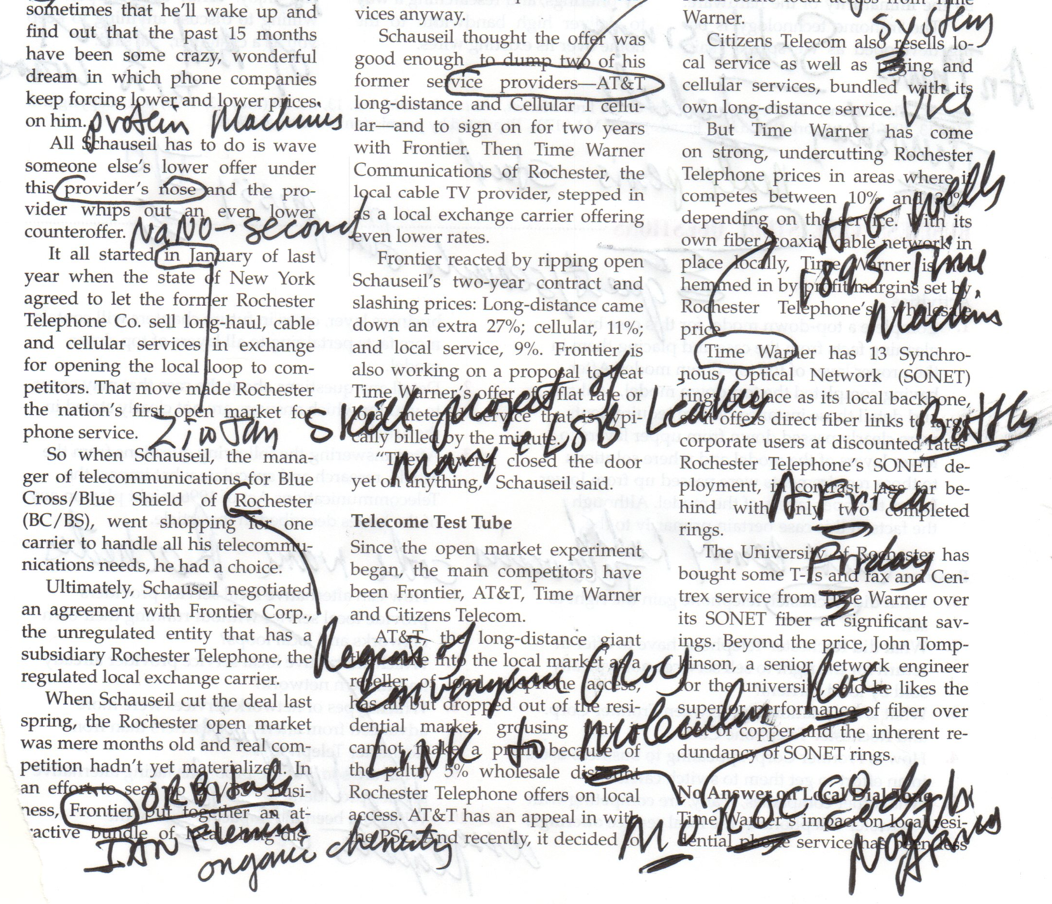 sometimes that he'll wake up and
find out that the past 15 months
have been some crazy, wonderful
dream in which phone companies
keep forcing lower and lower prices
on him.
protein Machines
All Schauseil has to do is wave
someone else's lower offer under
this provider's nose and the pro-
vider whips out an even lower
counteroffer.
NaNO-second
It all started in January of last
year when the state of New York
agreed to let the former Rochester
Telephone Co. sell long-haul, cable
and cellular services in exchange
for opening the local loop to com-
petitors. That move made Rochester
the nation's first open market for
phone service.
So when Schauseil, the mana-
ger of telecommunications for Blue
Cross/Blue Shield of Rochester
(BC/BS), went shopping for one
carrier to handle all his telecommu-
nications needs, he had a choice.
Ultimately, Schauseil negotiated
an agreement with Frontier Corp.,
the unregulated entity that has a
subsidiary Rochester Telephone, the
regulated local exchange carrier.
When Schauseil cut the deal last
spring, the Rochester open market
was mere months old and real com-
petition hadn't yet materialized. In
an effort to seal up BC/BS's busi-
ness, Frontier put together an at-
tractive bundle of
ORBitals
organic
vices anyway.
Schauseil thought the offer was
good enough to dump two of his
former service providers—AT&T
long-distance and Cellular 1 cellu-
lar—and to sign on for two years
with Frontier. Then Time Warner
Communications of Rochester, the
local cable TV provider, stepped in
as a local exchange carrier offering
even lower rates.
Frontier reacted by ripping open
Schauseil's two-year contract and
slashing prices: Long-distance came
down an extra 27%; cellular, 11%;
and local service, 9%. Frontier is
also working on a proposal to beat
Time Warner's offer of a flat rate or
local metered service that is typi-
cally billed by the minute.
"They haven't closed the door
yet on anything," Schauseil said.
Telecome Test Tube
Since the open market experiment
began, the main competitors have
been Frontier, AT&T, Time Warner
and Citizens Telecom.
AT&T, the long-distance giant
that came into the local market as a
reseller of local telephone access,
has all but dropped out of the resi-
dential market, grousing that it
cannot make a profit because of
the paltry 5% wholesale discount
Rochester Telephone offers on local
access. AT&T has an appeal in with
the PSC. And recently, it decided to
Region of
LINK to molecular
Warner.
system
Citizens Telecom also resells lo-
cal service as well as paging and
cellular services, bundled with its
own long-distance service.
But Time Warner has come
on strong, undercutting Rochester
Telephone prices in areas where it
competes between 10% and
depending on the service. With its
own fiber/coaxial cable network in
place locally, Time Warner is
hemmed in by profit margins set by
Rochester Telephone's wholesale
price.
HG Wells
1895 Time
Machine
Time Warner has 13 Synchro-
nous Optical Network (SONET)
rings in place as its local backbone,
it offers direct fiber links to large
corporate users at discounted rates.
Rochester Telephone's SONET de-
ployment, in contrast, lags far be-
hind with only two completed
rings.
Africa
Friday
The University of Rochester has
bought some T-1s and fax and Cen-
trex service from Time Warner over
its SONET fiber at significant sav-
ings. Beyond the price, John Tomp-
kinson, a senior network engineer
for the university, said he likes the
superior performance of fiber over
that of copper and the inherent re-
dundancy of SONET rings.
No Answer on Local Dial Tone
Time Warner's impact on local resi-
dential phone service has been less